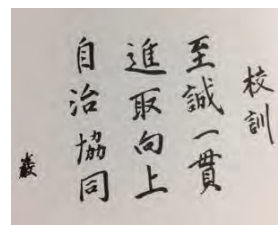 校訓
至誠一貫
進取向上
自治協同